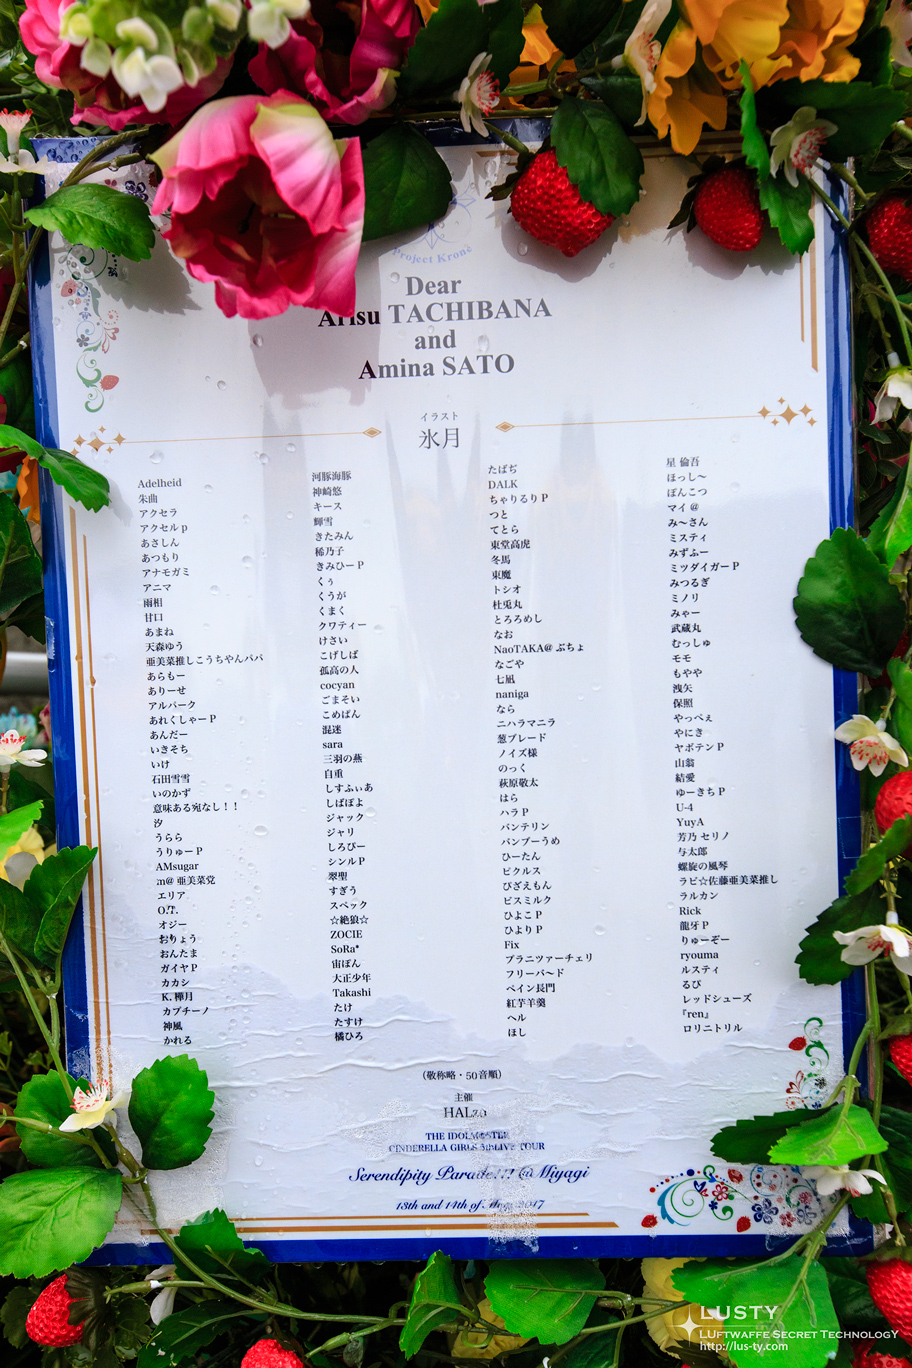 Project Krone
Dear
Arisu TACHIBANA
and
Amina SATO
イラスト
氷月
Adelheid
朱曲
アクセラ
アクセルp
あさしん
あつもり
アナモガミ
アニマ
雨相
甘口
あまね
天森ゆう
亜美菜推しこうちゃんパパ
あらもー
ありーせ
アルパーク
あれくしゃーP
あんだー
いきそち
いけ
石田雪雪
いのかず
意味ある宛なし！！
汐
うらら
うりゅーP
AMsugar
m@亜美菜党
エリア
O.T.
オジー
おりょう
おんたま
ガイヤP
カカシ
K.樺月
カプチーノ
神風
かれる
河豚海豚
神崎悠
キース
輝雪
きたみん
稀乃子
きみひーP
くぅ
くうが
くまく
クワティー
けさい
こげしば
孤高の人
cocyan
ごまそい
こめぱん
混迷
sara
三羽の燕
自重
しすふぃあ
しばぽよ
ジャック
ジャリ
しろぴー
シンルP
翠聖
すぎう
スペック
☆絶狼☆
ZOCIE
SoRa*
宙ぽん
大正少年
Takashi
たけ
たすけ
橘ひろ
たばぢ
DALK
ちゃりるりP
つと
てとら
東堂高虎
冬馬
東魔
トシオ
杜兎丸
とろろめし
なお
NaoTAKA@ぷちょ
なごや
七凪
naniga
なら
ニハラマニラ
葱ブレード
ノイズ様
のっく
萩原敬太
はら
ハラP
バンテリン
バンブーうめ
ひーたん
ピクルス
びざえもん
ビスミルク
ひよこP
ひよりP
Fix
プラニツァーチェリ
フリーバ〜ド
ペイン長門
紅芋羊羹
ヘル
ほし
星 倫吾
ほっし〜
ぽんこつ
マイ@
み〜さん
ミスティ
みずふー
ミツダイガーP
みつるぎ
ミノリ
みゃー
武蔵丸
むっしゅ
モモ
もやや
洩矢
保照
やっぺぇ
やにき
ヤポテンP
山翁
結愛
ゆーきちP
U-4
YuyA
芳乃 セリノ
与太郎
螺旋の風琴
ラピ☆佐藤亜美菜推し
ラルカン
Rick
龍牙P
りゅーぞー
ryouma
ルスティ
るび
レッドシューズ
『ren』
ロリニトリル
(敬称略・50音順)
主催
THE IDOLM@STER
CINDERELLA GIRLS 5thLIVE TOUR
Serendipity Parade!!! @Miyagi
13th and 14th of May, 2017
LUSTY
LUFTWAFFE SECRET TECHNOLOGY
http://lus-ty.com